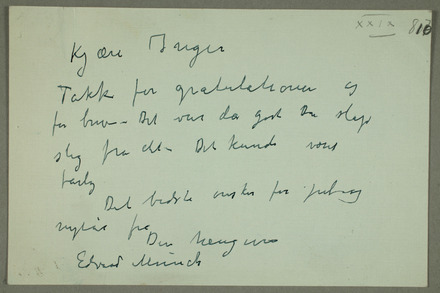 XXIX 810
Kjære Inger
Takk for gratulationen og
for brev – Det var da godt Du slap
slig fra det – Det kunde vært
farlig
Det bedste ønske for jul og
nytår fra
Din hengivne
Edvard Munch